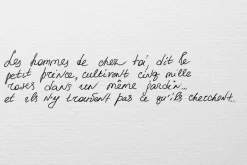 Les hommes de chez toi, dit le
petit prince, cultivent cinq mille
roses dans un même jardin...
et ils n'y trouvent pas ce qu'ils cherchent...